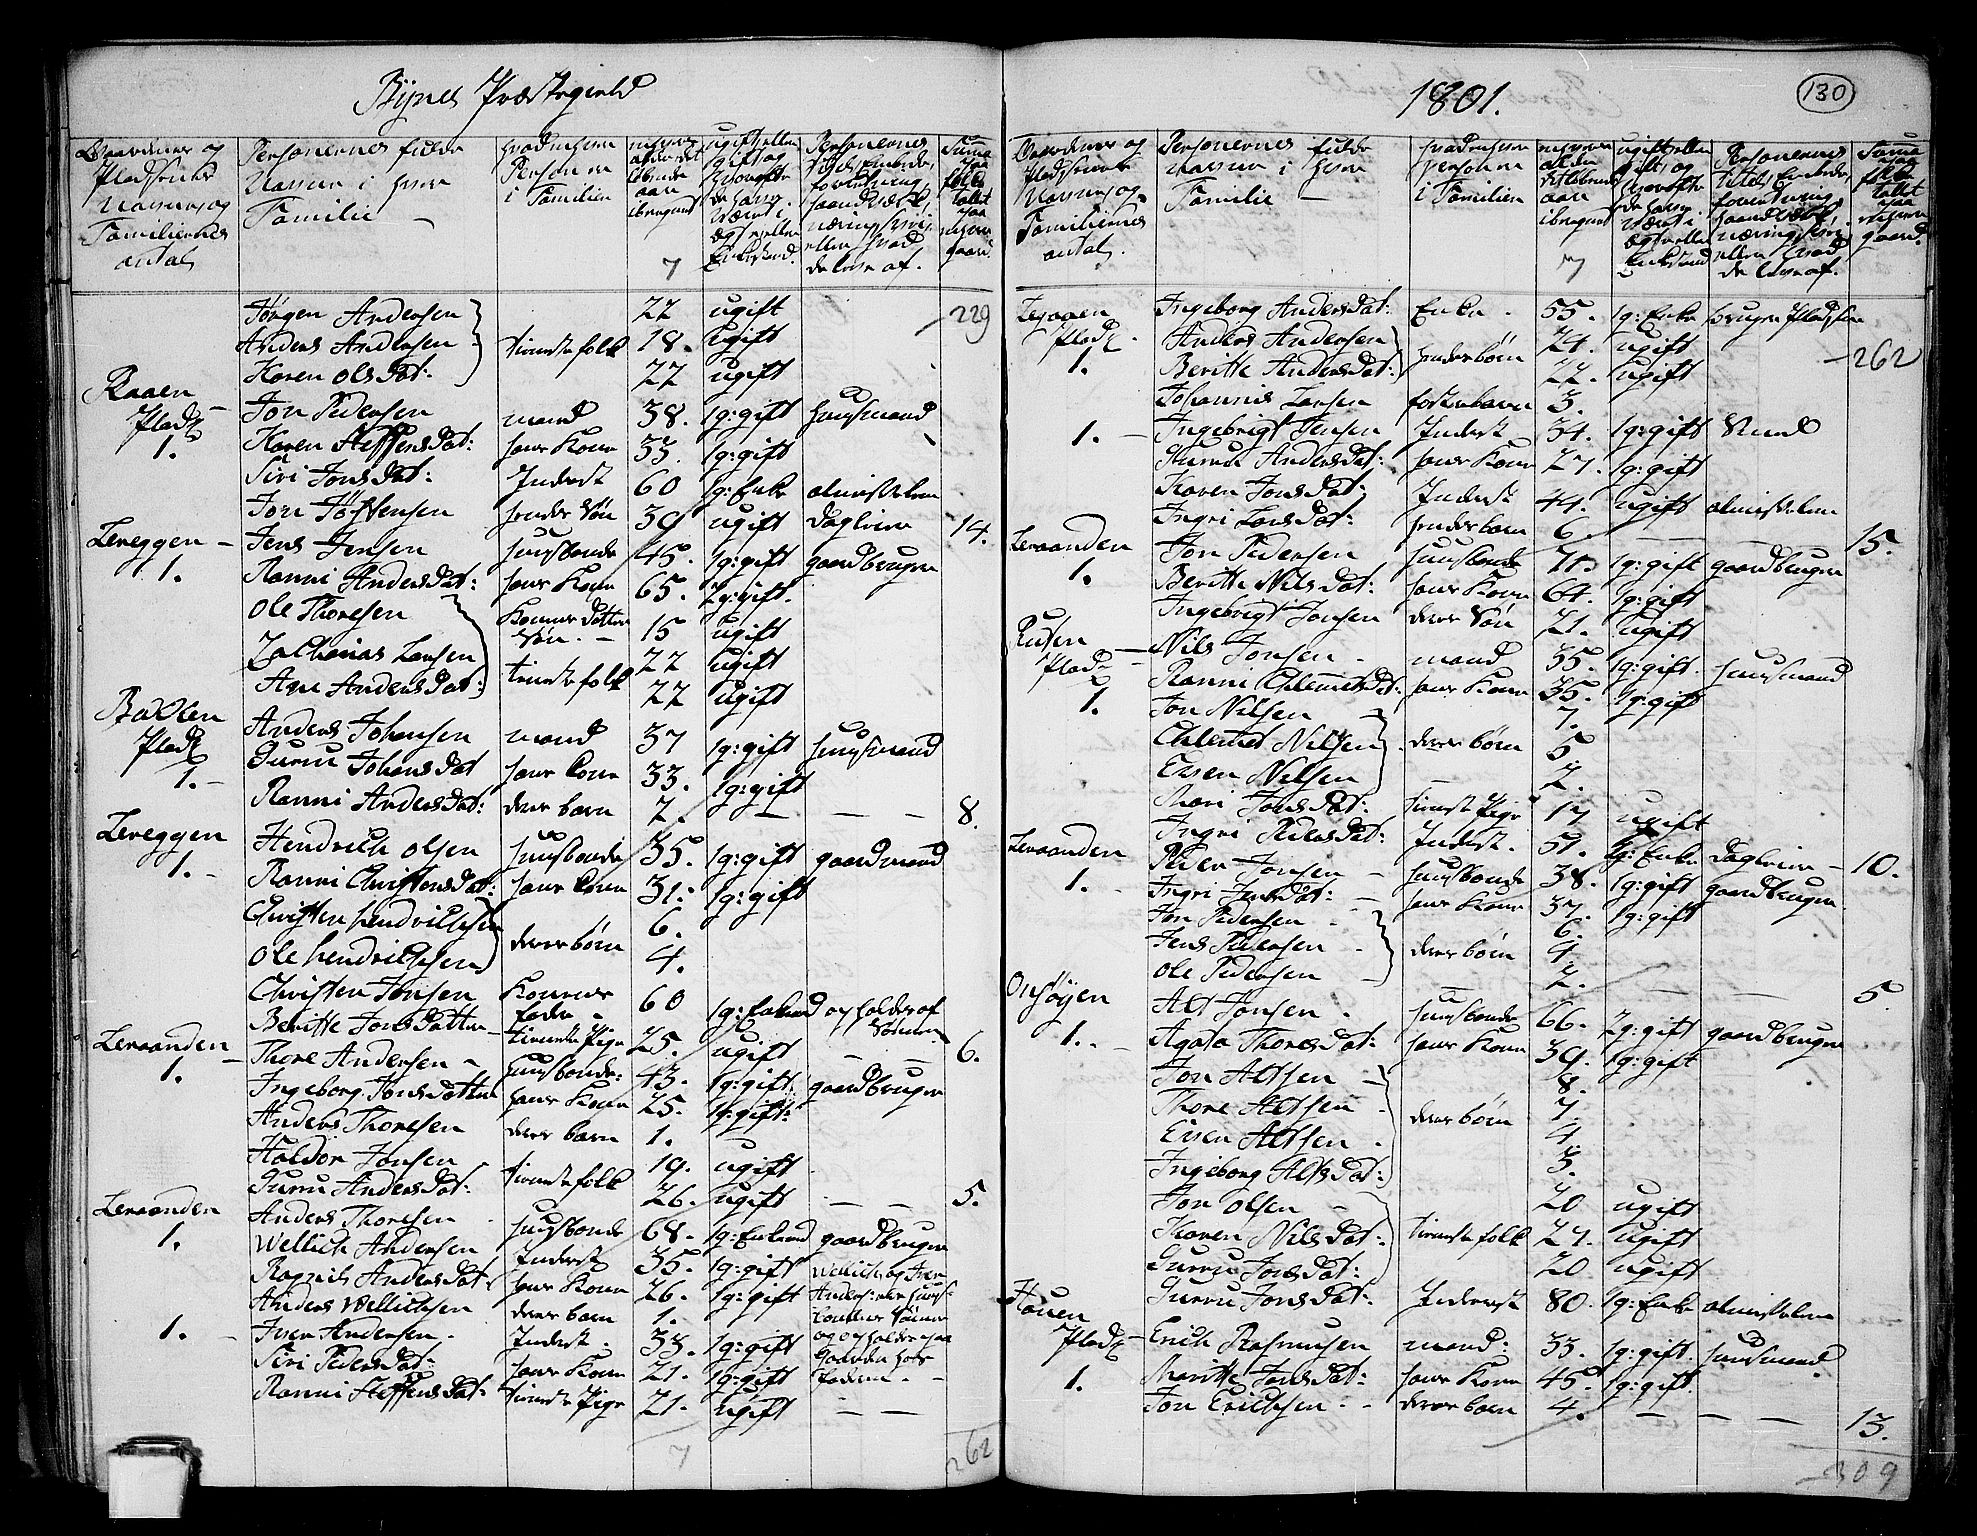 Bynes Præstegield
Gaardenes og Pladsenes Nafne, og Familiernes antal
Personernes fulde Nafne i hver Familie
hvad enhver Person er i Familien
enhvers alder det løbende aar iberegnet
ugift eller gift og hvor ofte de har været i Ægteskab eller Enkestand.
Personernes titel, Embede, forretning, haandværk, næringsvei, eller hvad de lever af.
Summa paa folketallet paa enhver gaard.
7
Jørgen Andersen 22 ugift 229
Anders Andersen tieneste folk 18. ugift
Karen Olsdat: 22 ugift
Raaen Plads 1.
Jon Pedersen mand 38. 1g: gift huusmand
Karen Steffensdat: hans Kone 33. 1g: gift
Siri Jonsdat: Inderst 60 1g: Enke almisselem
Jon Jostensen hendes Søn 39 ugift Dagleier 14.
Lereggen 1.
Jens Jensen huusbonde 45. 1g: gift gaardbruger
Ranni Andersdat: hans Kone 65. 2g: gift.
Ole Thoresen Konens Datter Søn 15 ugift
Zacharias Larsen tieneste folk 22 ugift
Ane Andersdat: 22 ugift
Bakken Plads 1.
Anders Johansen mand 37 1g: gift huusmand
Gurru Johansdat hans Kone 33. 1g: gift
Ranni Andersdat: deres barn 2. 8.
Lereggen 1.
Hendrich Olsen huusbonde 35. 1g: gift gaardmand
Ranni Christensdat: hans Kone 31. 1g: gift
Christen Hendrichsen deres børn 6.
Ole Hendrichsen 4.
Christen Jonsen Konens fader 60 1g: Enkemand opholdes af Sønnen
Beritte Jonsdatter tieneste Pige 25. ugift 6.
Leraanden 1.
Thore Andersen huusbonde 43. 1g: gift gaardbruger
Ingeborg Jonsdatter hans Kone 25. 1g: gift
Anders Thoresen deres barn 1.
Haldor Jonsen tieneste folk 19. ugift
Gurru Andersdat: 26. ugift 5.
Leraanden 1.
Anders Thoresen huusbonde 68. 1g: Enkemand gaardbruger
Wellich Andersen Inderst 35. 1g: gift Wellich og Iver
Ragnild Andersdat: hans Kone 26. 1g: gift Anders: ere huus-
Anders Wellichsen deres barn 1. bondens Sønner
1. Iver Andersen Inderst 33. 1g: gift og opholdes paa
Siri Pedersdat: hans Kone 21. 1g: gift Gaarden hos
Ranni Steffensdat: tieneste Pige 21. ugift faderen
7 262
1801.
130
Gaardenes og Pladsenes Nafne, og Familiernes antal.
Personernes fulde Nafne i hver Familie
hvad enhver person er i Familien
enhvers alder det løbende aar iberegnet
ugift eller gift, og hvor ofte de har været i Ægteskab eller Enkestand
Personernes titel, Embede, forretning, haandværk, næringsvei eller hvad de lever af.
Summa paa folketallet paa enhver gaard.
7
Plads 1.
Ingeborg Andersdat: Enke 55. 1g: Enke bruger Pladsen
Anders Andersen hendes børn 24. ugift 262
Beritte Andersdat: 22. ugift
Johannis Larsen fosterbarn 3.
1. Ingebrigt Jensen Inderst 34. 1g: gift Smed
Gurru Andersdat: hans Kone 27. 1g: gift
Karen Jonsdat: Inderst 44. ugift almisselem
Ingri Larsdat: hendes barn 6. 15.
Leraanden 1.
Jon Pedersen huusbonde 71. 1g: gift gaardbruger
Beritte Nilsdat: hans Kone 64. 1g: gift
Ingebrigt Jonsen deres Søn 21. ugift
Plads 1.
Nils Jonsen mand 35. 1g: gift. huusmand
Ranni Clemetsdat: hans Kone 35. 1g: gift
Jon Nilsen 7.
Clemet Nilsen deres børn 5
Essen Nilsen 2.
Mari Jonsdat: tieneste Pige 17 ugift
Ingri Pedersdat: Inderst. 51. 1g: Enke Dagleier 10.
Leraanden 1.
Peder Jonsen huusbonde 38. 1g: gift gaardbruger
Ingri Jensdat: hans Kone 37. 1g: gift
Jon Pedersen 6.
Jens Pedersen deres børn 4
Ole Pedersen 2. 5
Onsøyen 1.
Alf Jonsen huusbonde 66. 2g: gift gaardbruger
Agata Thoresdat: hans Kone 39. 1g: gift
Jon Alfsen 8.
Thore Alfsen deres børn 7.
Essen Alfsen 4.
Ingeborg Alfsdat: 3.
Jon Olsen 20 ugift
Karen Nilsdat: tieneste folk 27. ugift
Gurru Jonsdat: 20 ugift
Gurru Jonsdat: Inderst 80. 1g: Enke almisselem
Plads 1.
Erich Rasmusen mand: 33. 1g: gift. huusmand
Maritte Jonsdat: hans Kone 45. 1g: gift.
Jon Erichsen deres barn 4. 13.
309